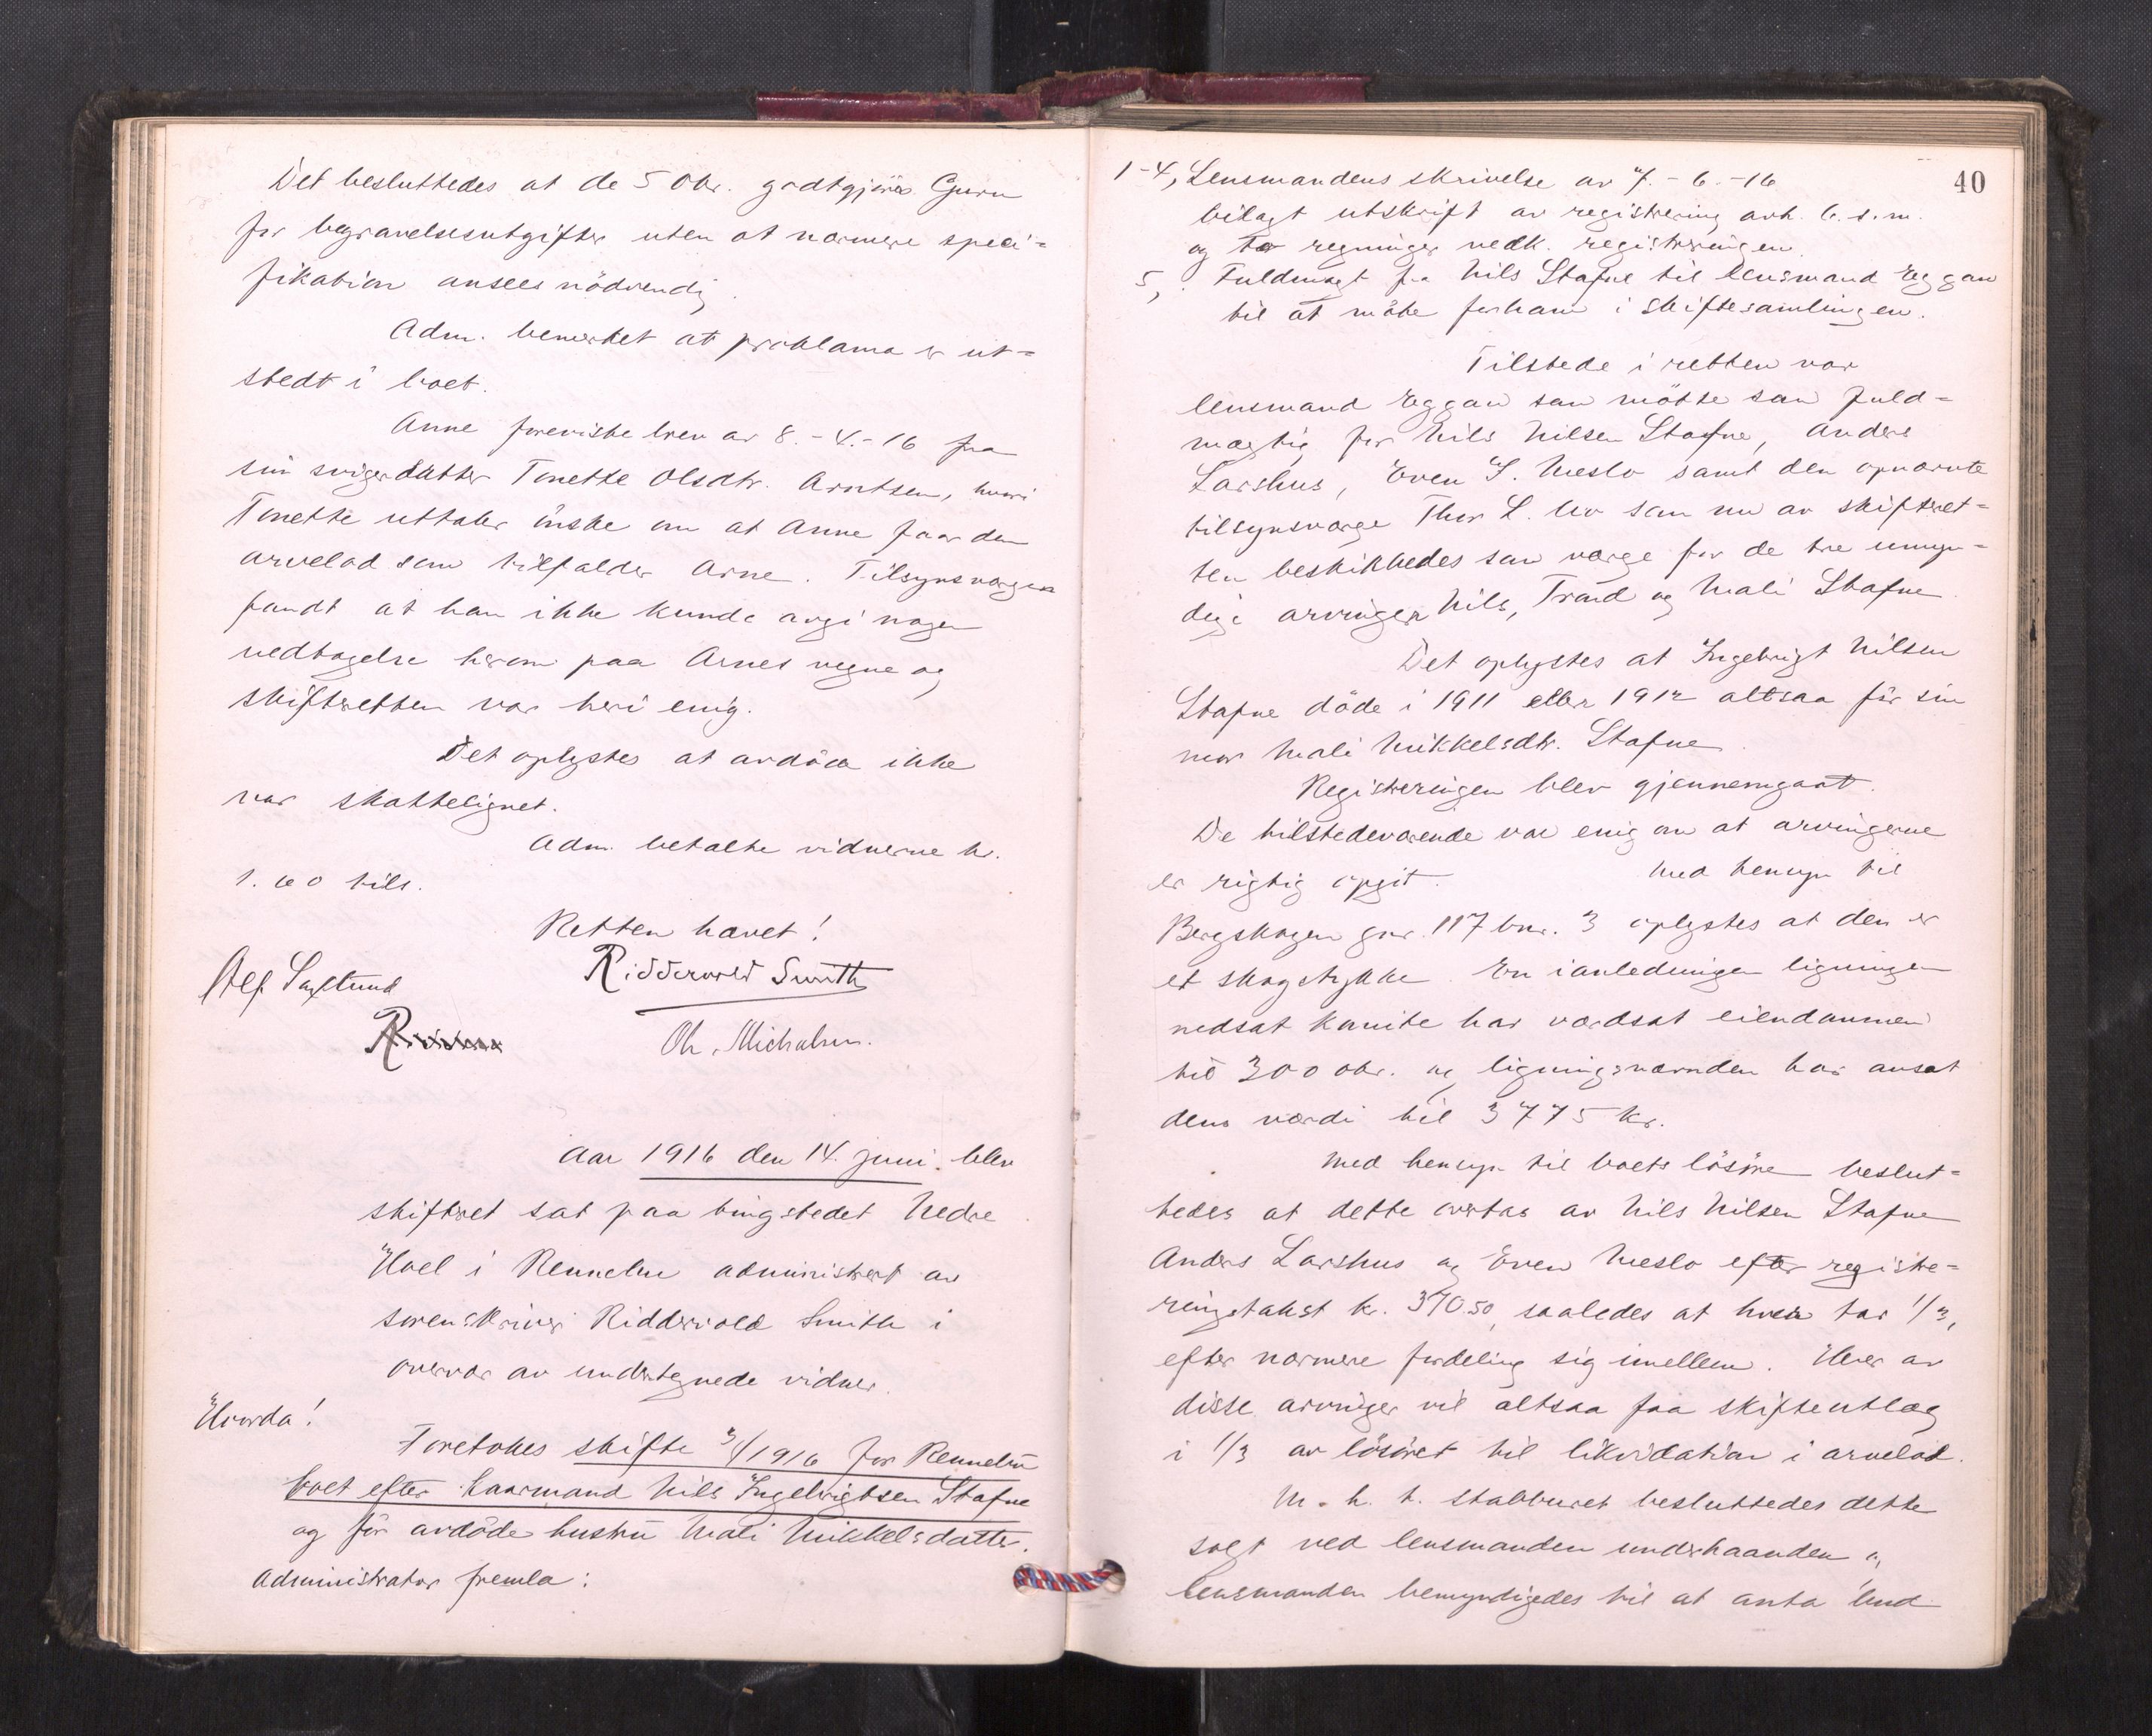 Det besluttedes at de 50 kr. godtgjöres Guru
for begravelsesutgifter uten at nærmere speci=
fikation ansees nödvendig.
Adm. bemerket at proklama er ut=
stedt i boet.
Anne foreviste brev av 8.-4.-16 fra
sin svigerdatter Tonette Olsdtr. Arntsen, hvori
Tonette uttaler önske om at Anne faar den
arvelod som tilfalder Arne. Tilsynsvergen
fandt at han ikke kunde avgi nogen
vedtagelse herom paa Arnes vegne og
skifteretten var heri enig.
Det oplystes at avdöde ikke
var skattelignet.
Adm. betalte vidnerne kr.
1.60 tils.
Retten hævet!
Riddervold Smith
Alf
Ol. Michalsen.
Aar 1916 den 14. juni blev
skifteret sat paa tingstedet Nedre
Hoel i Rennebu administrert av
sorenskriver Riddervold Smith i
overvær av undertegnede vidner.
Hvorda!
Foretokes skifte 3/1916 for Rennebu
boet efter kaarmand Nils Ingebrigtsen Stafne
og för avdöde hustru Mali Mikkelsdatter.
Administrator fremla:
40
1-4, Lensmandens skrivelse av 7.-6.-16
bilagt utskrift av registrering avh. 6. s.m.
og to regninger vedk. registreringen.
5, Fuldmagt fra Nils Stafne til lensmand Eggan
til at möte for ham i skiftesamlingen.
Tilstede i retten var
lensmand Eggan som mötte som fuld=
mægtig for Nils Nilsen Stafne, Anders
Larshus, Even I. Meslo samt den opnævnte
tilsynsværge Thor L. Uv som nu av skifteret=
ten beskikkedes som værge for de tre umyn=
dige arvinger Nils, Trond og Mali Stafne
Det oplystes at Ingebrigt Nilsen
Stafne döde i 1911 eller 1912 altsaa för sin
mor Mali Mikkelsdtr. Stafne.
Registreringen blev gjennemgaat.
De tilstedeværende var enig om at arvingerne
er rigtig opgit. Med hensyn til
Bergskogen gnr. 117 bnr. 3 oplystes at den er
et skogstykke. En i anledningen ligningen
nedsat komite har værdsat eiendommen
til 3000 kr. og ligningsnævnden har ansat
dens værdi til 3775 kr.
Med hensyn til boets lösöre beslut=
tedes at dette overtas av Nils Nilsen Stafne
Anders Larshus og Even Meslo efter registre=
ringstakst kr. 370.50, saaledes at hver tar 1/3,
efter nærmere fordeling sig imellem. Hver av
disse arvinger vil altsaa faa skifteutlæg
i 1/3 av lösöret til likvidation i arvelod.
M. h. t. stabburet besluttedes dette
solgt ved lensmanden underhaanden og
lensmanden bemyndigedes til at anta bud